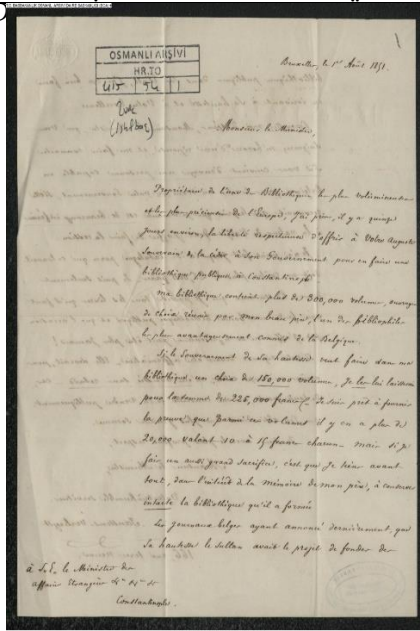 OSMANLI ARŞİVİ
HR.TO
415 54 1
Bruxelles, le 1er Août 1851.
Monsieur le Ministre,
Propriétaire de l'une des Bibliothèques les plus volumineuses
et les plus précieuses de l'Europe, j'ai pris, il y a quinze
jours environ, la liberté respectueuse d'offrir à Votre Auguste
Souverain de la céder à son Gouvernement pour en faire une
bibliothèque publique à Constantinople
Ma bibliothèque contient plus de 300,000 volumes, ouvrages
de choix réunis par mon beau père, l'un des bibliophiles
le plus avantageusement connus de la Belgique.
Si le Gouvernement de Sa Hautesse veut faire dans ma
bibliothèque, un choix de 150,000 volumes, Je les lui laisserai
pour la somme de 225,000 francs. Je suis prêt à fournir
la preuve, que parmi ces volumes il y en a plus de
20,000 valant 10 à 15 francs chacun mais si je
fais un aussi grand sacrifice, c'est que je tiens avant
tout, dans l'intérêt de la mémoire de mon père, à conserver
intacte la bibliothèque qu'il a formée
Les journaux belges ayant annoncé dernièrement, que
Sa hautesse le Sultan avait le projet de fonder des
à S. E. le Ministre des
affaires Etrangères
Constantinople.